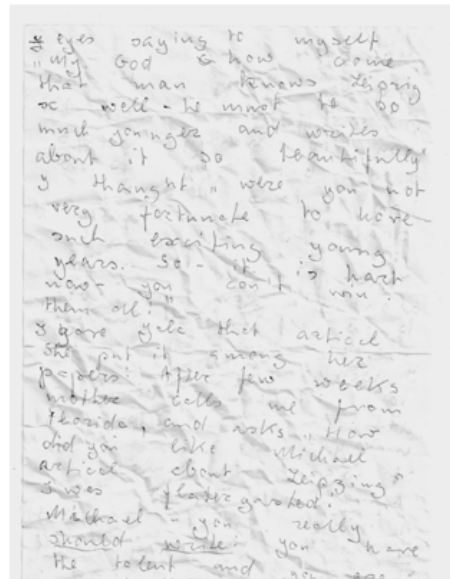 eyes saying to myself
"My God & how come
that man knows Leipzig
so well - he must be so
much younger and writes
about it so beautifully"
y thought "were you not
very fortunate to have
such exciting young
years. So - it is hart
now - you can't win
them all!"
I gave yale that articel
she put it among her
papers. After few weeks
mother calls me from
Florida, and asks "How
did you like Michael
articel about Leipzing"
I was flabergasted!
Michael - you really
should write you have
the talent and you are